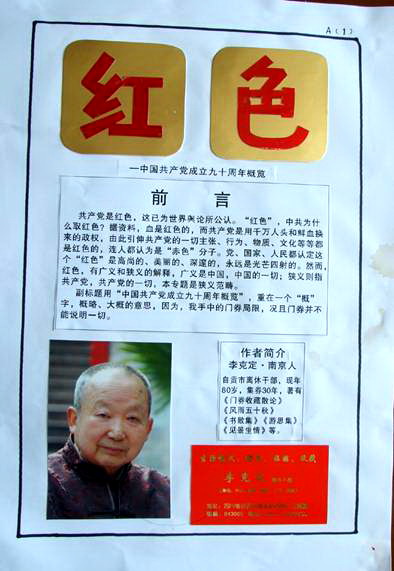 A(1)
红色
—中国共产党成立九十周年概览
前言
共产党是红色，这已为世界舆论所公认。“红色”，中共为什
么取红色？据资料，血是红色的，而共产党是用千万人头和鲜血换
来的政权，由此引伸共产党的一切主张、行为、物质、文化等等都
是红色的，连人都认为是“赤色”分子。党、国家、人民都认定这
个“红色”是高尚的、美丽的、深邃的，永远是光芒四射的。然而，
红色，有广义和狭义的解释，广义是中国，中国的一切；狭义则指
共产党，共产党的一切，本专题是狭义范畴。
副标题用“中国共产党成立九十周年概览”，重在一个“概”
字，概略、大概的意思，因为，我手中的门券局限，况且门券并不
能说明一切。
作者简介
李克定·南京人
自贡市离休干部，现年
80岁，集券30年，著有
《门券收藏散论》
《风雨五十秋》
《书散集》《游思集》
《见签生情》等。
李克